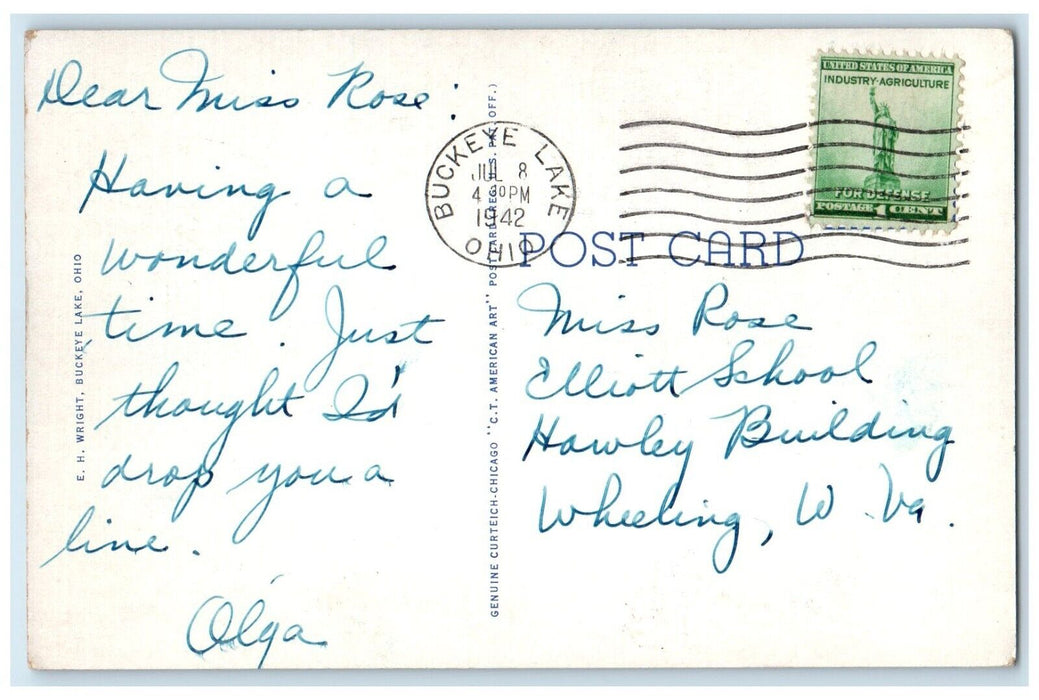 Dear Miss Rose:
Having a
wonderful
time. Just
thought I'd
drop you a
line.
Olga
E. H. WRIGHT, BUCKEYE LAKE, OHIO
GENUINE CURTEICH-CHICAGO "C.T. AMERICAN ART" POST CARD (REG. U.S. PAT. OFF.)
BUCKEYE LAKE
JUL 8
4 30 PM
1942
OHIO
UNITED STATES OF AMERICA
INDUSTRY-AGRICULTURE
FOR DEFENSE
POSTAGE 1 CENT
POST CARD
Miss Rose
Elliott School
Hawley Building
Wheeling, W. Va.